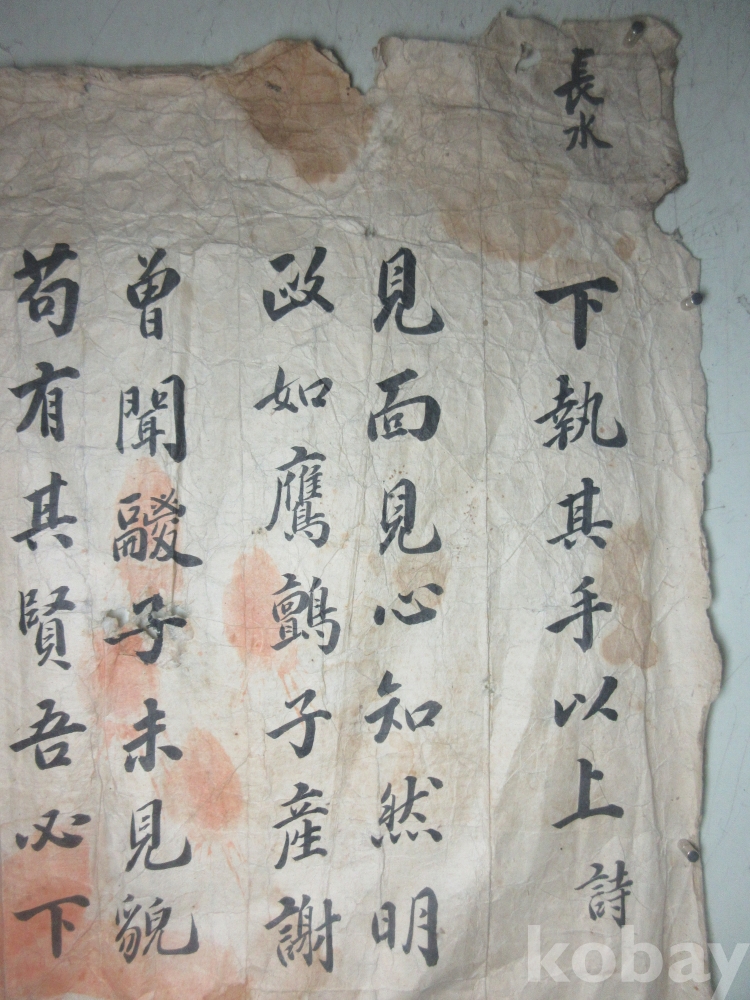 長水
下執其手以上詩
見面見心知然明
政如鷹鸇子産謝
曾聞鬷子未見貌
苟有其賢吾必下
kobay